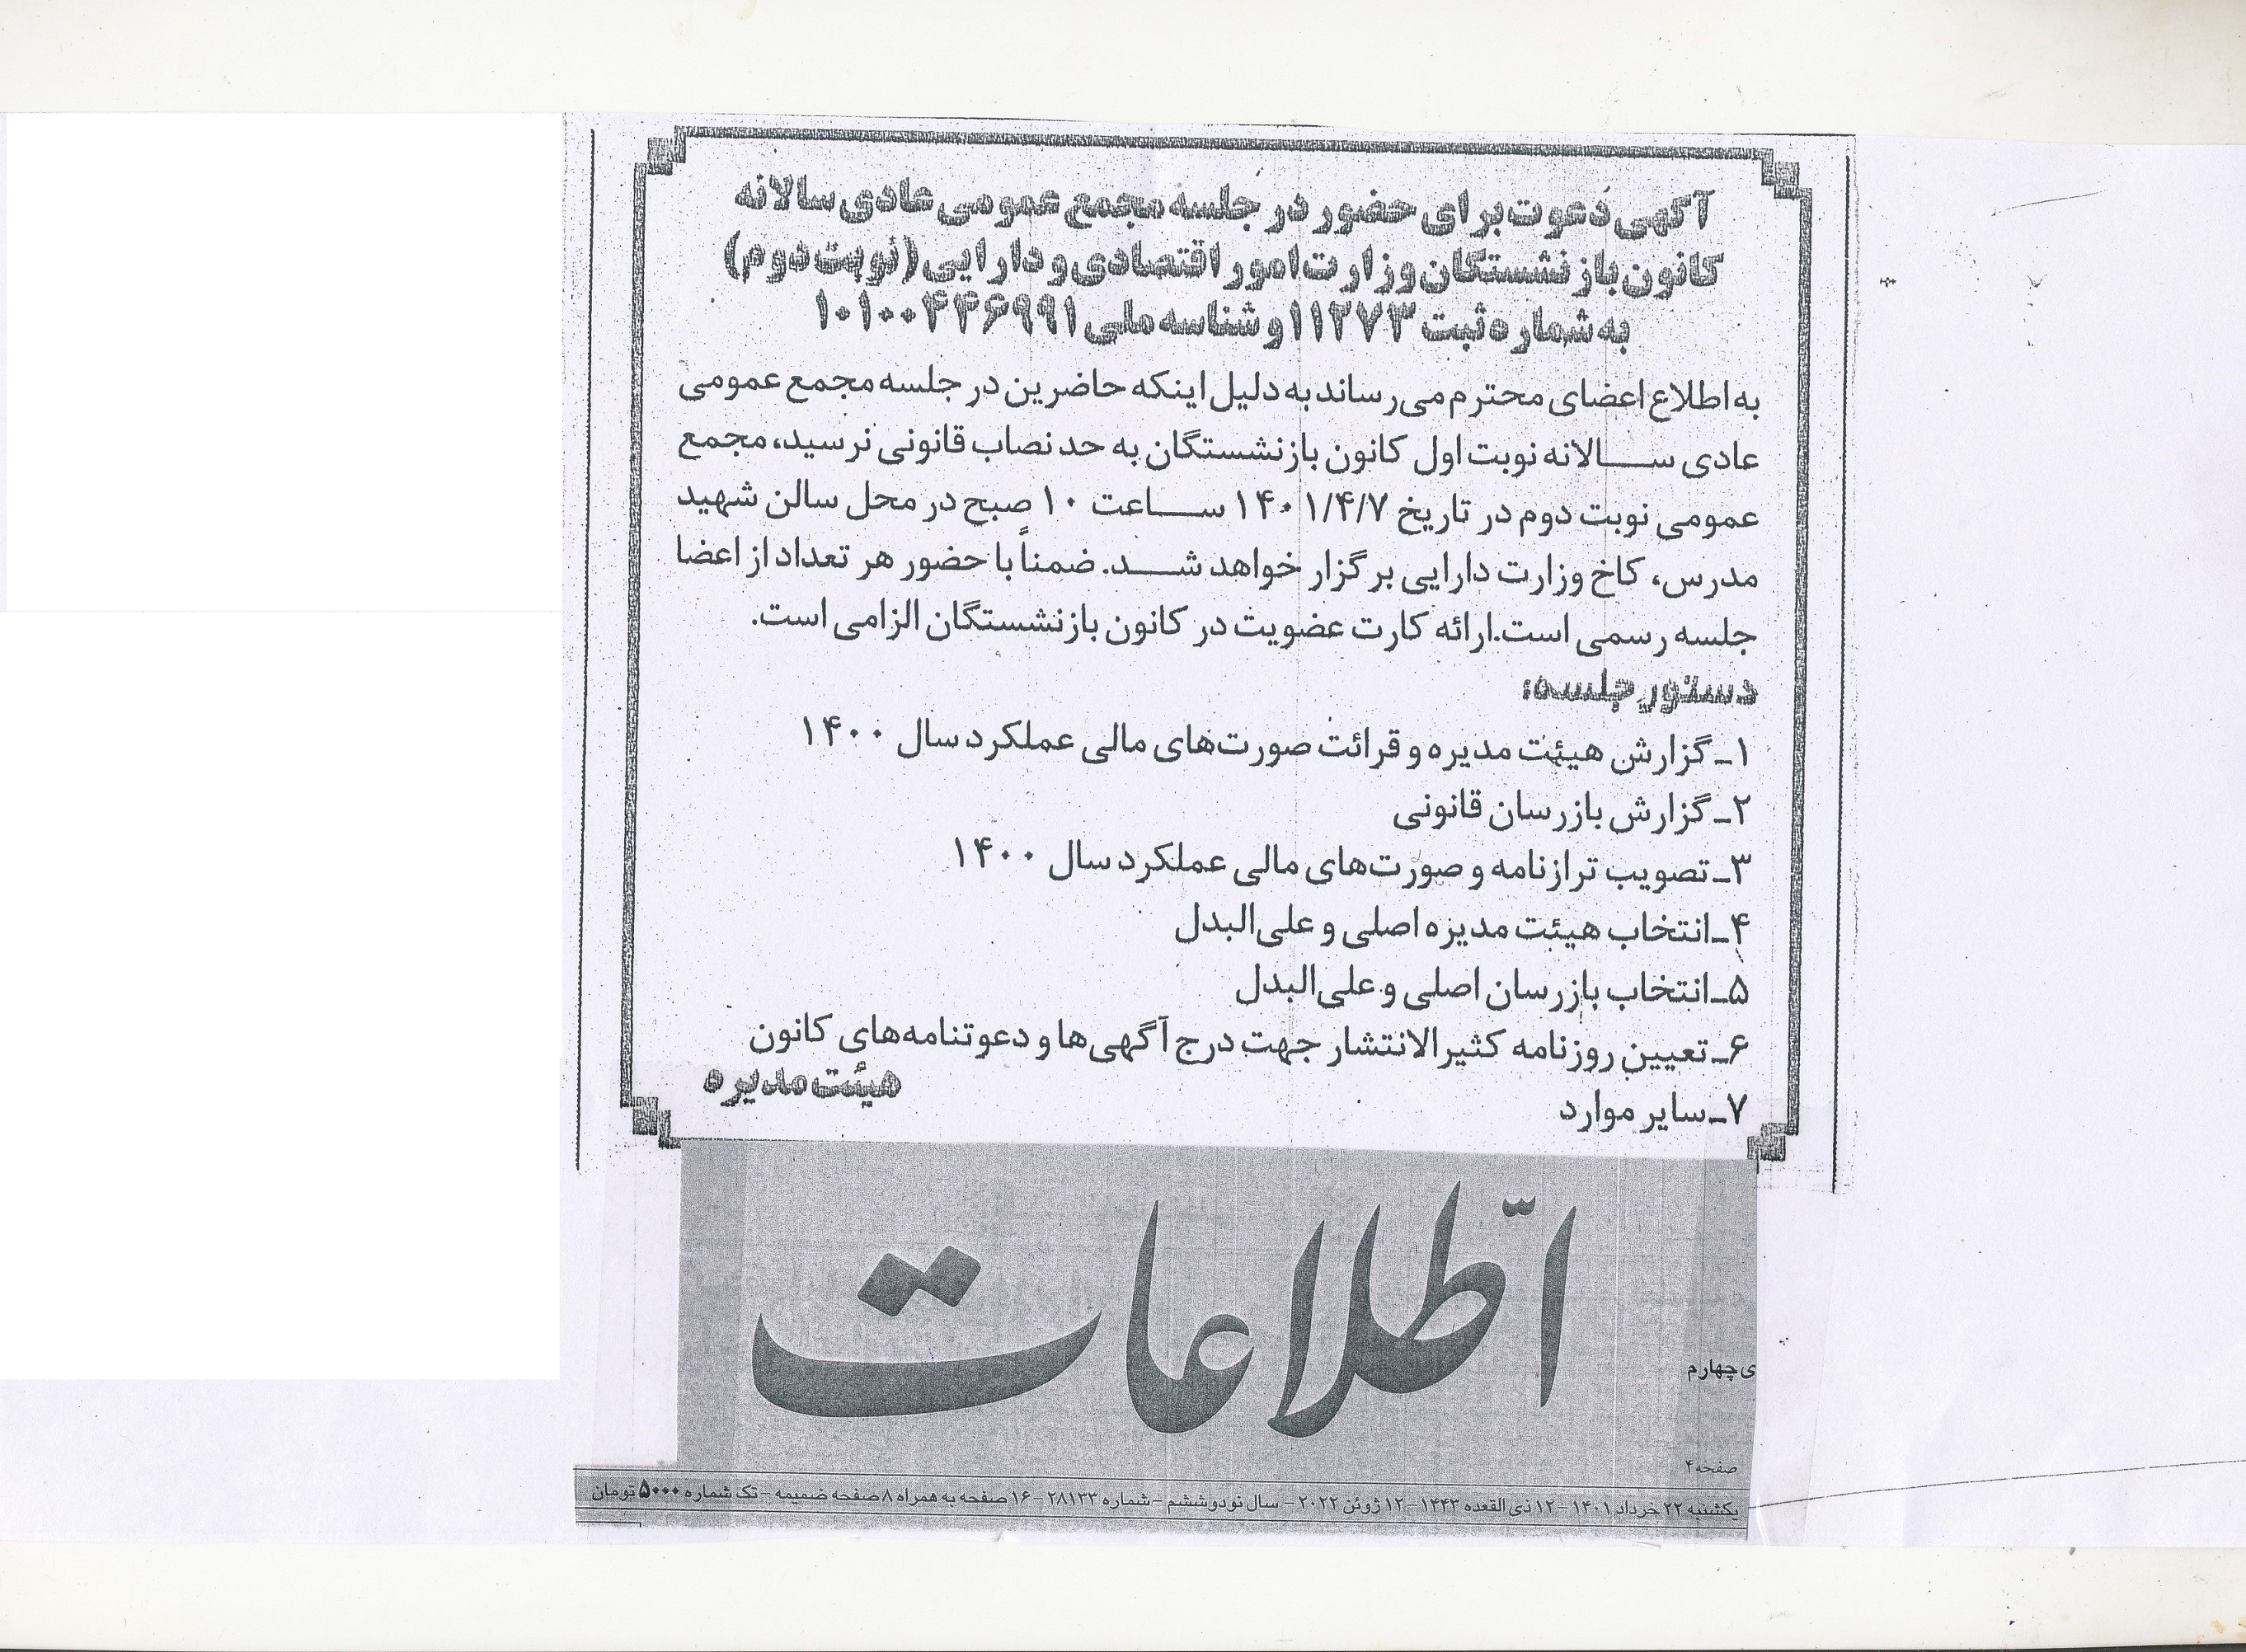 آگهی دعوت برای حضور در جلسه مجمع عمومی عادی سالانه
کانون بازنشستگان وزارت امور اقتصادی و دارایی (نوبت دوم)
به شماره ثبت ۱۱۲۷۳ و شناسه ملی ۱۰۱۰۰۴۴۶۹۹۱
به اطلاع اعضای محترم می‌رساند به دلیل اینکه حاضرین در جلسه مجمع عمومی
عادی ســالانه نوبت اول کانون بازنشستگان به حد نصاب قانونی نرسید، مجمع
عمومی نوبت دوم در تاریخ ۱۴۰۱/۴/۷ ســاعت ۱۰ صبح در محل سالن شهید
مدرس، کاخ وزارت دارایی برگزار خواهد شــد. ضمناً با حضور هر تعداد از اعضا
جلسه رسمی است. ارائه کارت عضویت در کانون بازنشستگان الزامی است.
دستور جلسه:
۱ـ گزارش هیئت مدیره و قرائت صورت‌های مالی عملکرد سال ۱۴۰۰
۲ـ گزارش بازرسان قانونی
۳ـ تصویب ترازنامه و صورت‌های مالی عملکرد سال ۱۴۰۰
۴ـ انتخاب هیئت مدیره اصلی و علی‌البدل
۵ـ انتخاب بازرسان اصلی و علی‌البدل
۶ـ تعیین روزنامه کثیرالانتشار جهت درج آگهی‌ها و دعوتنامه‌های کانون
۷ـ سایر موارد
هیئت مدیره
اطّلاعات
ی چهارم
صفحه ۴
یکشنبه ۲۲ خرداد ۱۴۰۱ - ۱۲ ذی القعده ۱۴۴۳ - ۱۲ ژوئن ۲۰۲۲ - سال نودوششم - شماره ۲۸۱۳۳ - ۱۶ صفحه به همراه ۸ صفحه ضمیمه - تک شماره ۵۰۰۰ تومان